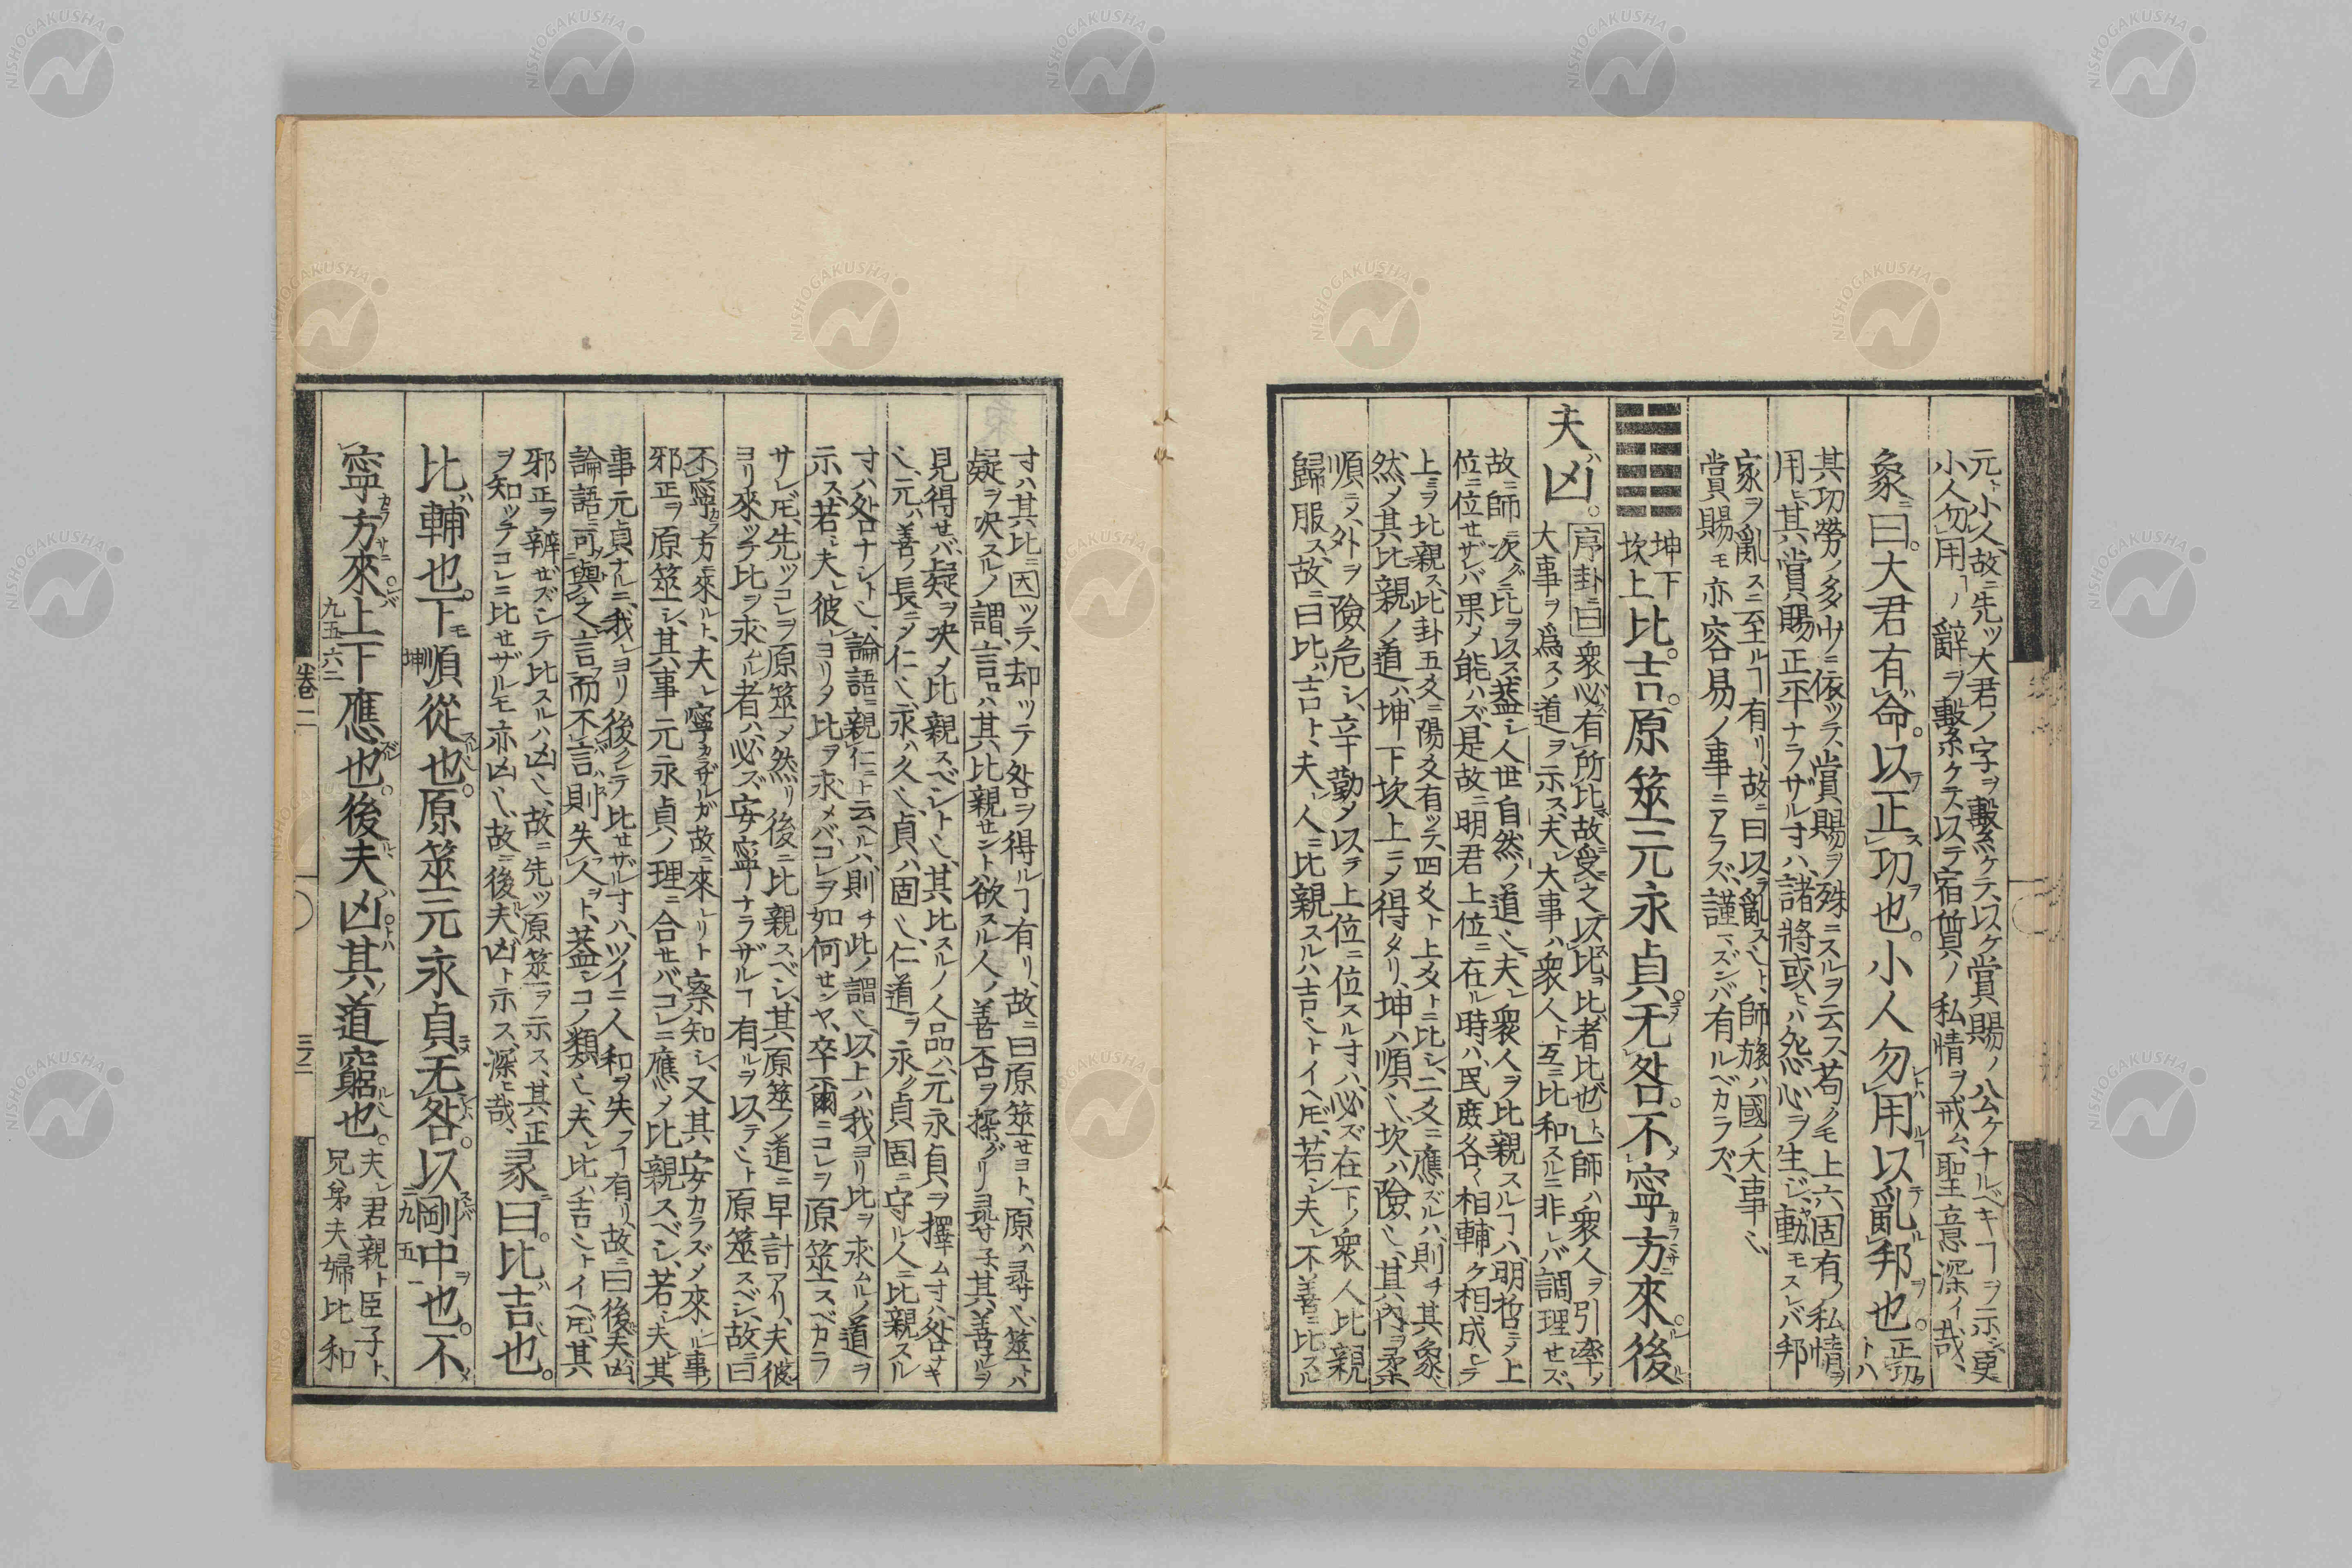 元ト小人、故ニ先ツ大君ノ字ヲ繫ケテ、以ケ賞賜ノ公ケナルベキヿヲ示シ、更
小人勿用ヿノ辭ヲ繫ケテ以テ宿質ノ私情ヲ戒ム、聖意深イ哉、
象ニ曰。大君有命。以テ正ス功ヲ也。小人勿用ルヿ以テ亂ル邦ヲ也。正功トハ
其功勞ノ多少ニ依ツテ、賞賜ヲ殊ニスルヲ云ス、苟クモ上六固有ノ私情ヲ
用ヒ、其賞賜正平ナラザル寸ハ、諸將或ヒハ怨心ヲ生ジ、動モスレバ邦
家ヲ亂スニ至ルヿ有リ、故ニ曰以テ亂ス乄ト、師旅ハ國ノ大事乄
賞賜モ亦容易ノ事ニアラズ、謹マズンバ有ルベカラズ、
坤下
坎上
比吉。原筮元永貞无咎。不寧方來。後
夫凶。
序卦ニ曰衆必有所比故受之以比比者比也ト、師ハ衆人ヲ引率ノ
大事ヲ爲スノ道ヲ示ス、夫レ大事ハ衆人ト互ニ比和スルニ非レバ調理セズ、
故ニ師ニ次グニ比ヲ以ス、蓋シ人世自然ノ道乄、夫レ衆人ヲ比親スルヿハ明哲ニメ上
位ニ位セザレバ果メ能ハズ、是故ニ明君上位ニ在ル時ハ、民庶各〱相輔ケ相成シテ
上ミヲ比親ス、此卦五爻ニ陽爻有ツテ、四爻ト上爻トニ比シ、二爻ニ應ズルハ、則チ其象乄
然メ其比親ノ道ハ、坤下坎上ニメ得タリ、坤ハ順乄、坎ハ險乄、其内ヲ柔
順ニメ、外ヲ險危シ、辛勤メ以テ上位ニ位スル寸ハ、必ズ在下ノ衆人比親
歸服ス、故ニ曰比ハ吉ト、夫レ人ニ比親スルハ吉乄トイヘ𪜈、若シ夫レ不善ニ比スル
寸ハ其比ニ因ツテ、却ツテ咎ヲ得ルヿ有リ、故ニ曰原筮セヨト、原ハ尋乄、筮トハ
疑ヲ决スルノ謂、言ロハ其比親セント欲スル人ノ善否ヲ探グリ尋子、其善ナルヲ
見得セバ、疑ヲ决メ比親スベシト乄、其比スルノ人品ハ、元永貞ヲ擇ム寸ハ、咎ナキ
乄、元ハ善ノ長ニメ仁乄、永ハ久乄、貞ハ固乄、仁道ヲ永ク貞固ニ守ル人ニ比親スル
寸ハ咎ナシト乄、論語ニ親仁ニト云ヘルハ、則チ此ノ謂乄、以上ハ我ヨリ比ヲ求ムルノ道ヲ
示ス、若シ夫レ彼レヨリメ比ヲ求メバ、コレヲ如何センヤ、卒爾ニコレヲ原筮スベカラ
サレ𪜈、先ツコレヲ原筮メ然リ後ニ比親スベシ、其原筮ノ道ニ早計アリ、夫彼レ
ヨリ來ツテ比ヲ求ムル者ハ、必ズ安寧ナラザルヿ有ルヲ以テ乄ト原筮スベシ、故ニ曰
不寧方ニ來ルト、夫レ寧カラザルガ故ニ來レリト察知シ、又其安カラズメ來ルノ事ノ
邪正ヲ原筮シ、其事元永貞ノ理ニ合セバ、コレニ應メ比親スベシ、若シ夫レ其
事元貞ナルニ、我レヨリ後クレテ比セザル寸ハ、ツイニ人和ヲ失フヿ有リ、故ニ曰後夫凶
論語ニ可與之言而不言、則失人ヲト、蓋シコノ類乄、夫レ比ハ吉乄トイヘ𪜈、其
邪正ヲ辨ゼズンテ比スルハ凶乄、故ニ先ツ原筮ヲ示ス、其正
ヲ知ツテコレニ比セザルモ亦凶乄、故ニ後夫凶ト示ス、深ヒ哉、
彖曰。比吉也。
比輔也。下順從也。原筮元永貞无咎。以剛中也。不
寧方來。上下應也。後夫凶其道窮也。
夫レ君親ト臣子ト、
兄弟夫婦比和
坤
九五一
九五六二
卷二
三ノ二